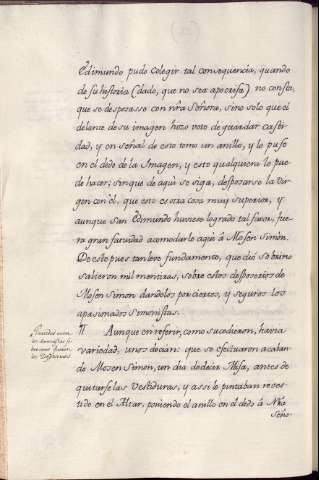 Edimundo pudo colegir tal consequencia, quando
de su historia (dado, que no sea apocrifa) no consta,
que se desposasse con nra Señora, sino solo que el
delante de su imagen hizo voto de guardar casti-
dad, y en señal de esto tomo un anillo, y le puso
en el dedo de la Imagen, y esto qualquiera lo pue-
de hacer, sin que de aqui se siga, desposarse la Vir-
gen con èl, que esto es otra cosa muy superior, y
aunque San Edmundo huviese logrado tal favor, fue-
ra gran facilidad acomodarlo aqui à Mosen Simon.
De este pues tan leve fundamento, que dió sobrino
salieron mil mentiras, sobre estos desposorios de
Mosen Simon dandolos por ciertos, y seguros los
apasionados Simonistas.
¶ Aunque en referir, como sucedieron, havia
variedad, unos decian: que se efectuaron acaban
de Mosen Simon, un dia de decir Misa, antes de
quitarse las Vestiduras, y assi le pintaban reves-
tido en el Altar, poniendo el anillo en el dedo à Nra
Seño-